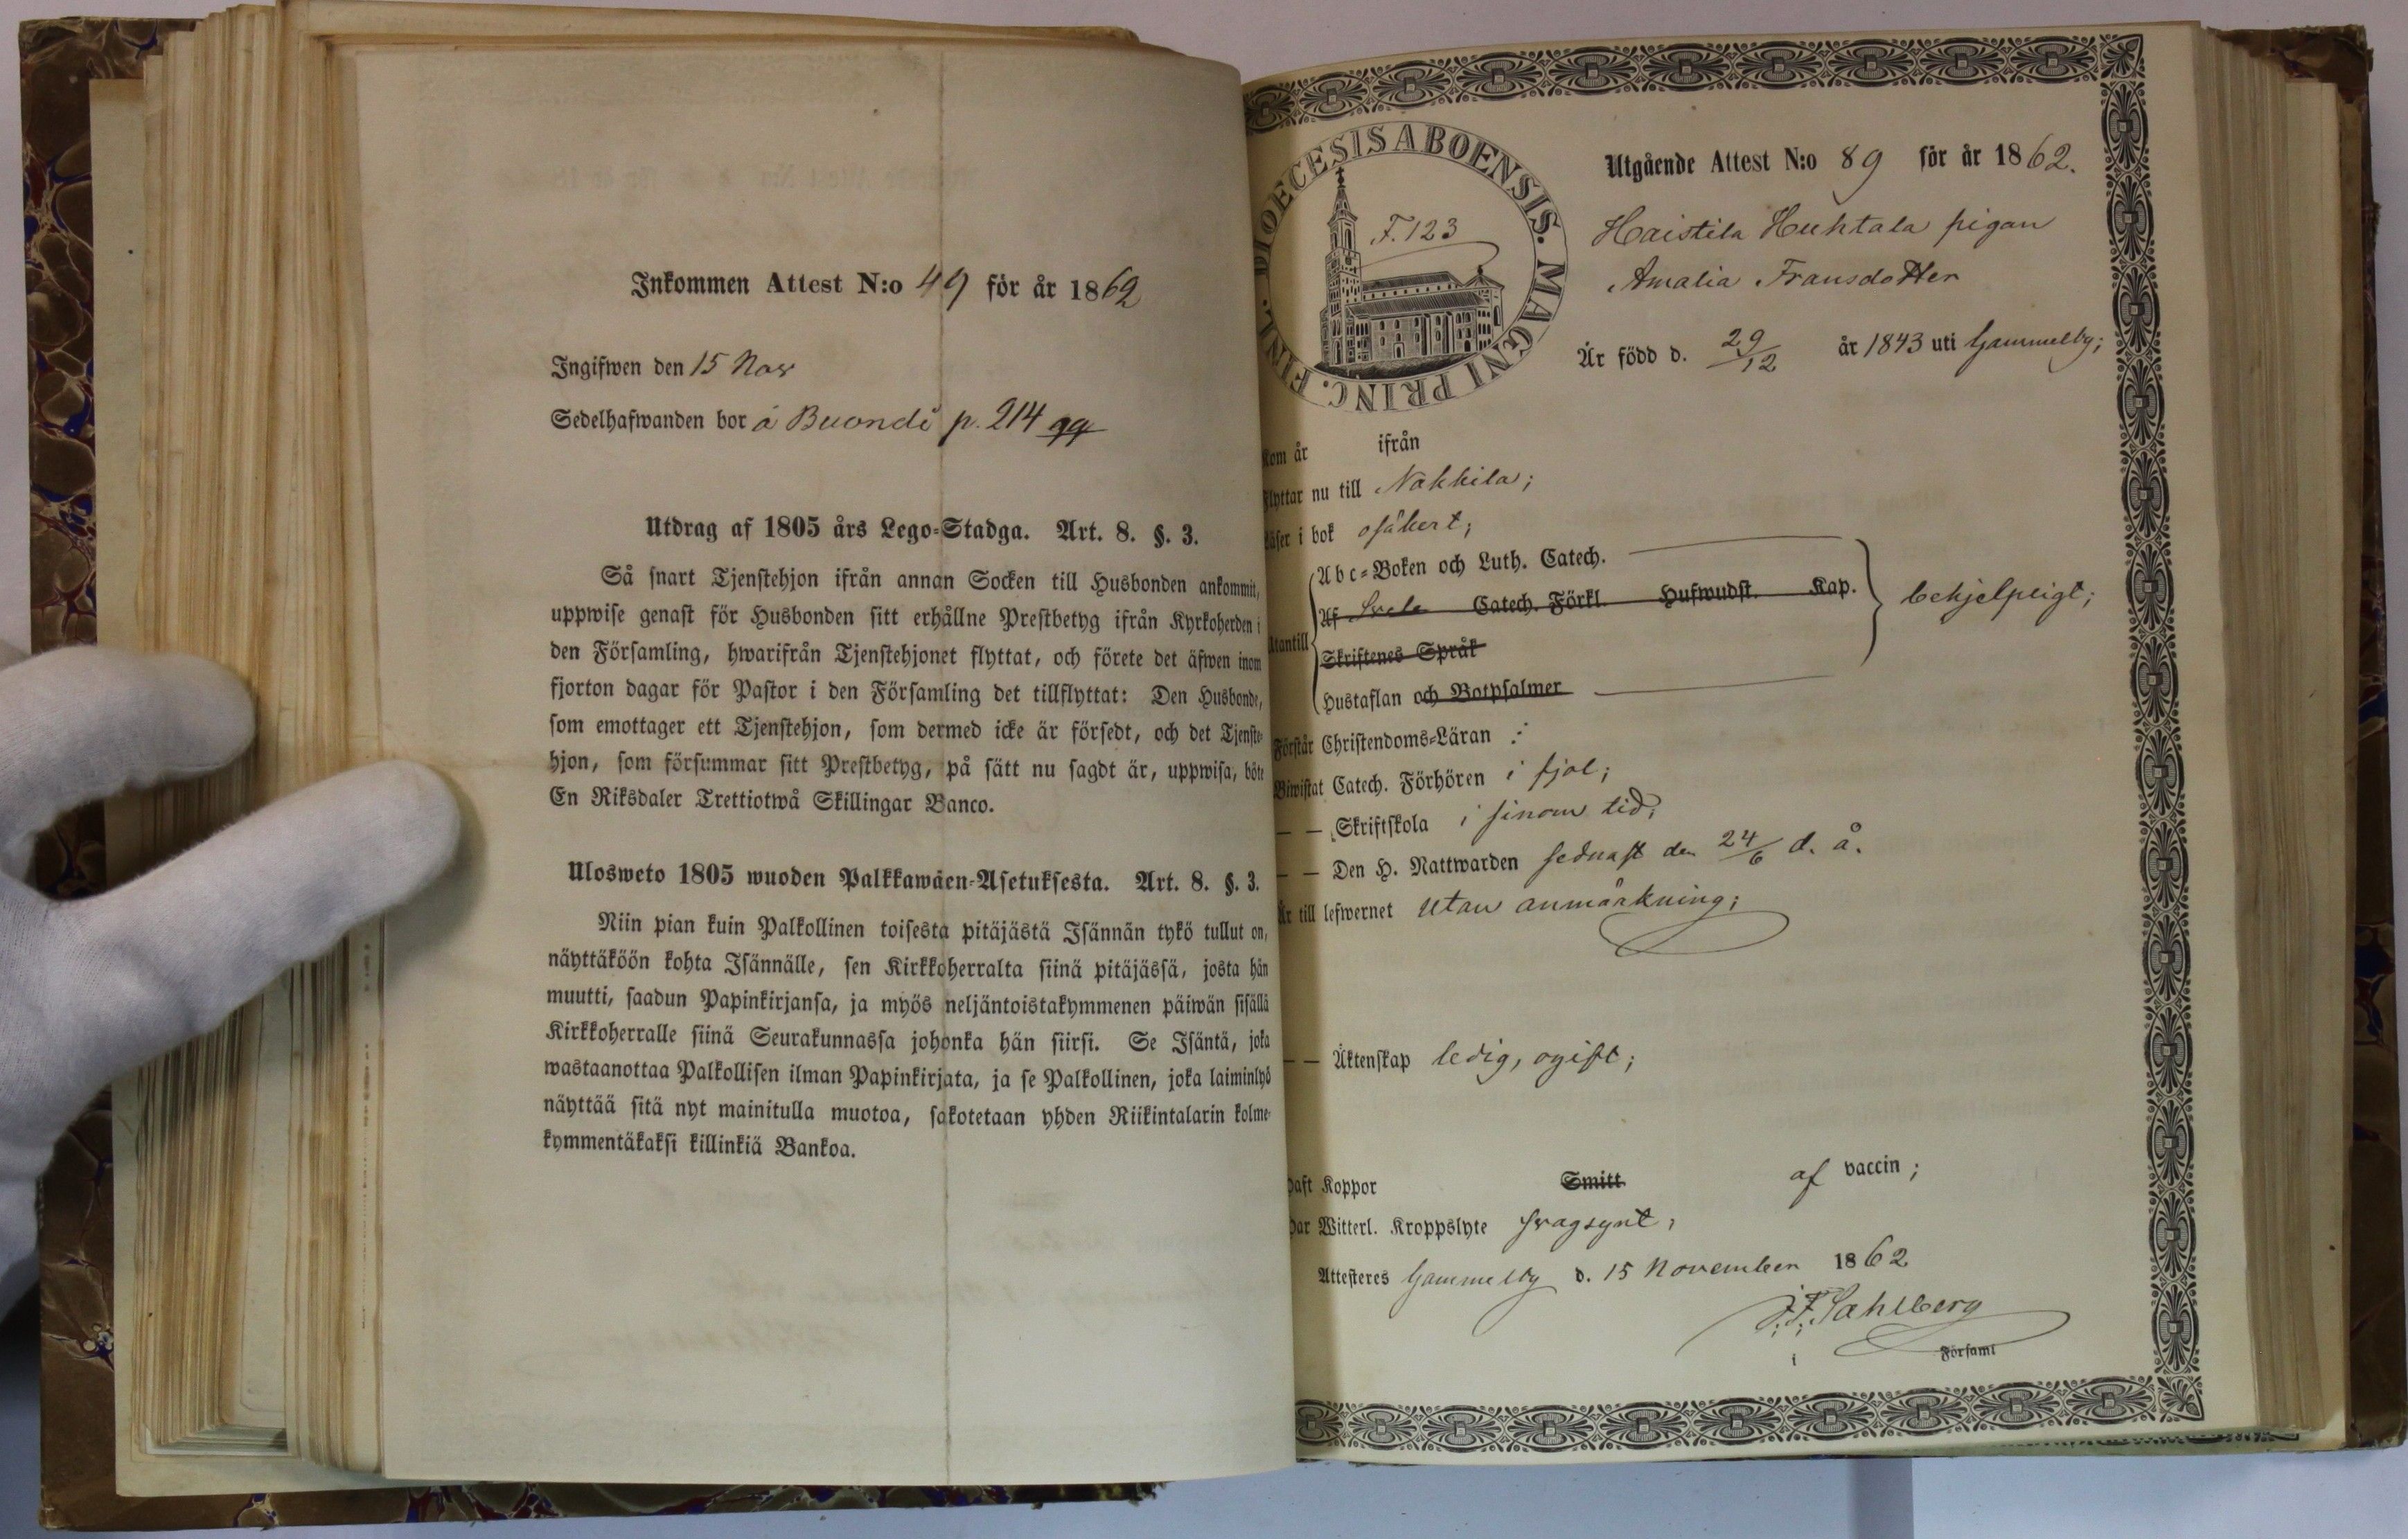 Inkommen Attest N:o 49 för år 1862
Ingifwen den 15 Nov
Sedelhafwanden bor á p. 214
Utdrag af 1805 års Lego-Stadga. Art. 8. §. 3.
Så snart Tjenstehjon ifrån annan Socken till Husbonden ankommit,
uppwise genast för Husbonden sitt erhållne Prestbetyg ifrån Kyrkoherden i
den Församling, hwarifrån Tjenstehjonet flyttat, och förete det äfwen inom
fjorton dagar för Pastor i den Församling det tillflyttat: Den Husbonde,
som emottager ett Tjenstehjon, som dermed icke är försedt, och det Tjenste-
hjon, som försummar sitt Prestbetyg, på sätt nu sagdt är, uppwisa, böte
En Riksdaler Trettiotwå Skillingar Banco.
Ulosweto 1805 wuoden Palkkawäen-Asetuksesta. Art. 8. §. 3.
Niin pian kuin Palkollinen toisesta pitäjästä Isännän tykö tullut on,
näyttäköön kohta Isännälle, sen Kirkkoherralta siinä pitäjässä, josta hän
muutti, saadun Papinkirjansa, ja myös neljäntoistakymmenen päiwän sisällä
Kirkkoherralle siinä Seurakunnassa johonka hän siirsi. Se Isäntä, joka
wastaanottaa Palkollisen ilman Papinkirjata, ja se Palkollinen, joka laiminlyö
näyttää sitä nyt mainitulla muotoa, sakotetaan yhden Riikintalarin kolme-
kymmentäkaksi killinkiä Bankoa.
DIOECESIS ABOENSIS. MAGNI PRINC. FINL.
F. 123
Utgående Attest N:o 89 för år 1862.
Haistila Huhtala pigan
Amalia Fransdotter
Är född d. 29/12 år 1843 uti Gammelby;
Kom år ifrån
Flyttar nu till Nakkila;
Läser i bok osäkert;
Utantill
Abc-Boken och Luth. Catech.
Af Svebe Catech. Förkl. Hufwudst. Kap.
Skriftenes Språk
Hustaflan och Botpsalmer
behjelpligt;
Förstår Christendoms-Läran :
Biwistat Catech. Förhören i fjol;
— — Skriftskola i sinom tid;
— — Den H. Nattwarden sednast den 24/6 d. å.
Är till lefwernet utan anmärkning;
— — Äktenskap ledig, ogift;
Haft Koppor Smitt af vaccin;
Har Witterl. Kroppslyte svagsynt;
Attesteres Gammelby d. 15 November 1862
J. F. Sahlberg
i Församl